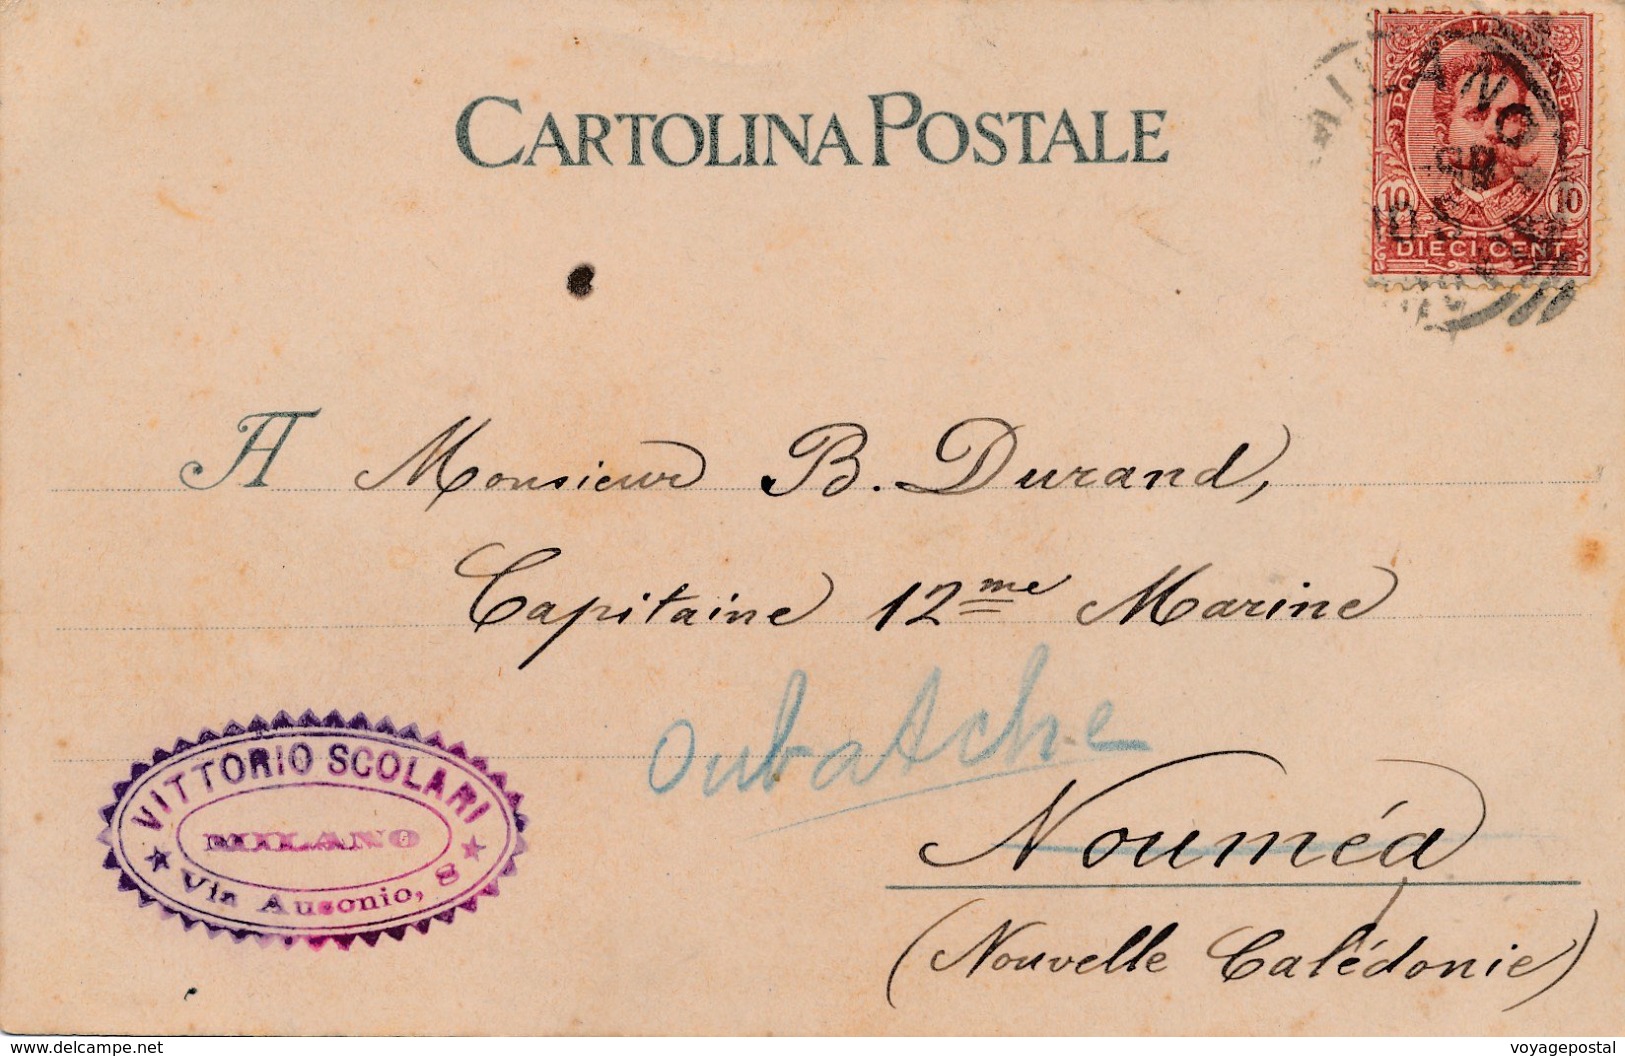 CARTOLINA POSTALE
POSTE ITALIANE
MILANO
10 10
DIECI CENT.
A Monsieur B. Durand,
Capitaine 12me Marine
Oubatche
Nouméa
(Nouvelle Calédonie)
VITTORIO SCOLARI
MILANO
Via Ausonio, 8
www.delcampe.net
voyagepostal